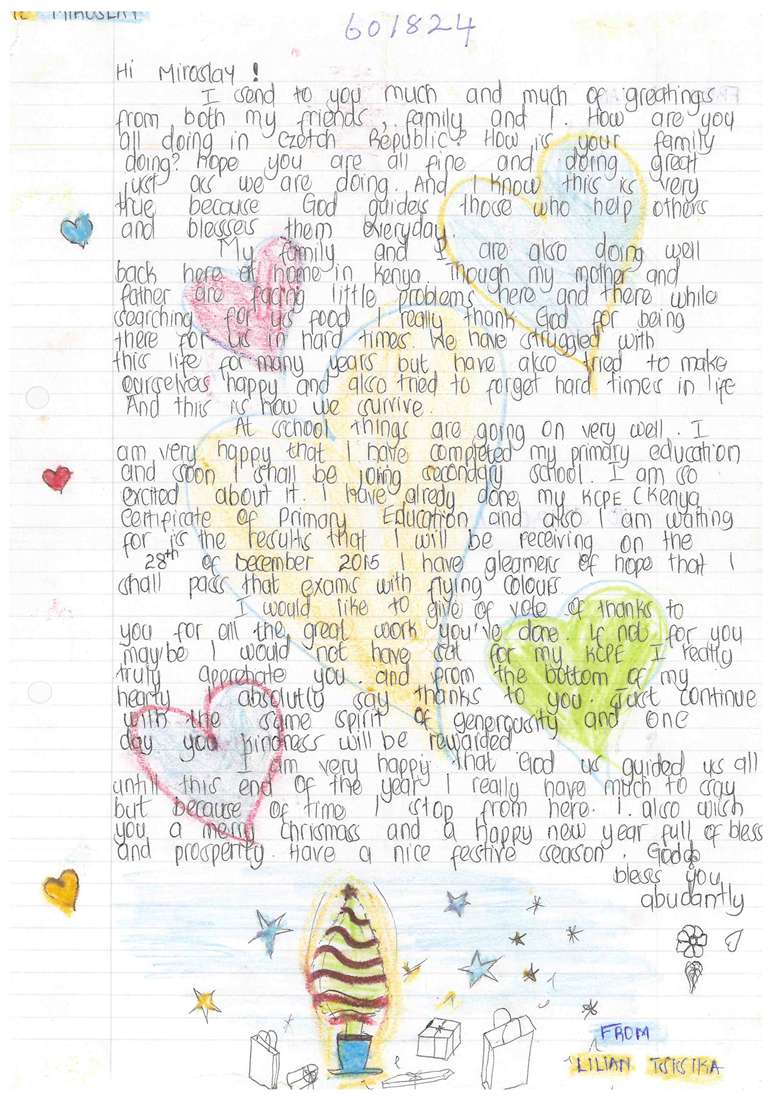 MIROSLAV
601824
Hi Miroslav !
I send to you much and much of greatings
from both my friends, family and I. How are you
all doing in Czetch Republic? How is your family
doing? Hope you are all fine and doing great
just as we are doing. And I know this is very
true because God guides those who help others
and blesses them everyday.
My family and I are also doing well
back here at home in Kenya though my mother and
father are facing little problems here and there while
searching for us food I really thank God for being
there for us in hard times. We have struggled with
this life for many years but have also tried to make
ourselves happy and also tried to forget hard times in life
And this is how we survive.
At school things are going on very well. I
am very happy that I have completed my primary education
and soon I shall be joing secondary school. I am so
excited about it. I have alredy done my KCPE (Kenya
Certificate of Primary Education and also I am waiting
for is the results that I will be receiving on the
28th of December 2015 I have gleamers of hope that I
shall pass that exams with flying colours
I would like to give of vote of thanks to
you for all the great work you've done. If not for you
maybe I would not have sat for my KCPE I really
truly approate you and from the bottom of my
hearty I absolutly say thanks to you. Just continue
with the same spirit of generousity and one
day you kindness will be rewarded
I am very happy that God us guided us all
until this end of the year I really have much to say
but because of time I stop from here. I also wish
you a merry chrismass and a happy new year full of bless
and prosperity. Have a nice festive season. God
bless you
abudantly
FROM
LILIAN TSISIKA